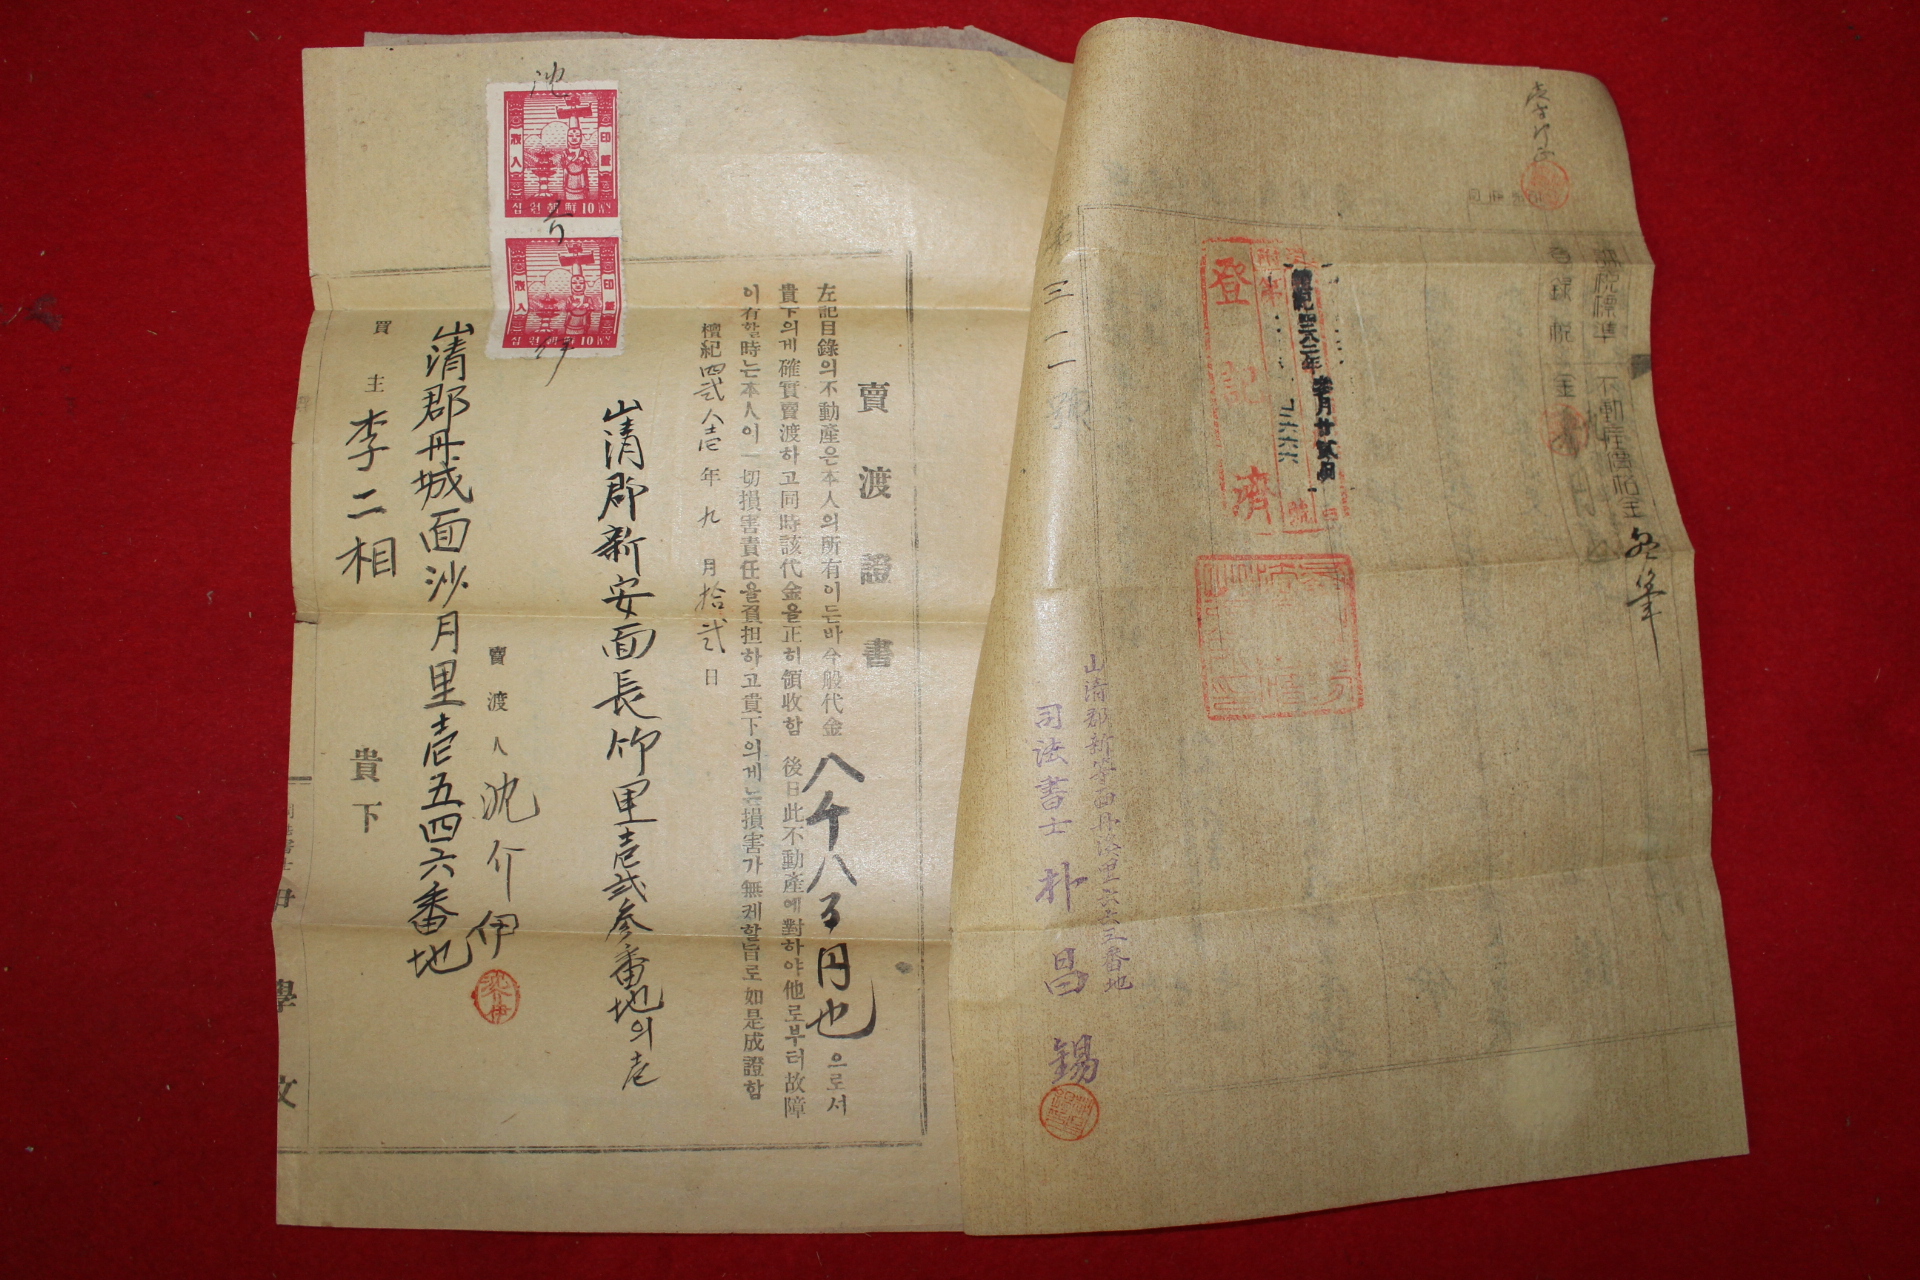 賣渡證書
左記目錄의不動產은本人의所有이든바今般代金八千八百円也으로서
貴下의게確實賣渡하고同時該代金을正히領收함 後日此不動產에對하야他로부터故障
이有할時는本人이一切損害責任을負担하고貴下의게는損害가無케할旨로如是成證함
檀紀四貳八壱年九月拾貳日
山清郡新安面長竹里壱貳參番地의壱
賣渡人 沈介伊
山清郡丹城面沙月里壱五四六番地
買主 李二相 貴下
收入印紙
십원朝鮮10
收入印紙
십원朝鮮10
學文
第三一一號
登記濟
山清郡新等面丹溪里
司法書士 朴昌錫
課稅標準 不動産價格金
登錄稅金